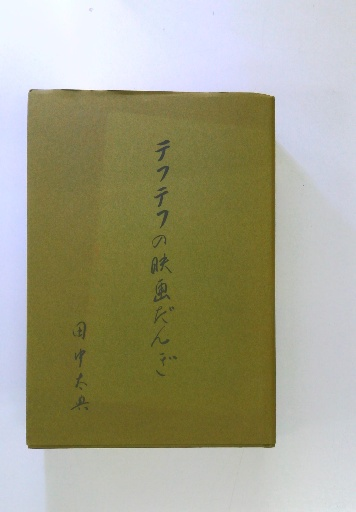 テフテフの映画だんぎ
田中太兵